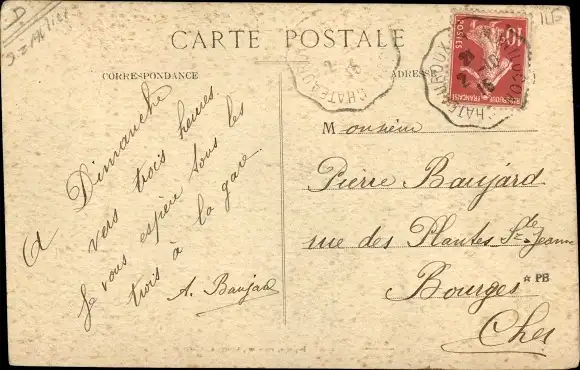 CARTE POSTALE
CORRESPONDANCE
ADRESSE
A Dimanche
vers trois heures
Je vous espère tous les
trois à la gare.
A. Baujard
10
POSTES
RÉPUBLIQUE FRANÇAISE
CHATEAUROUX
Monsieur
Pierre Baujard
rue des Plantes Ste Jeanne
Bourges
* PB
Cher